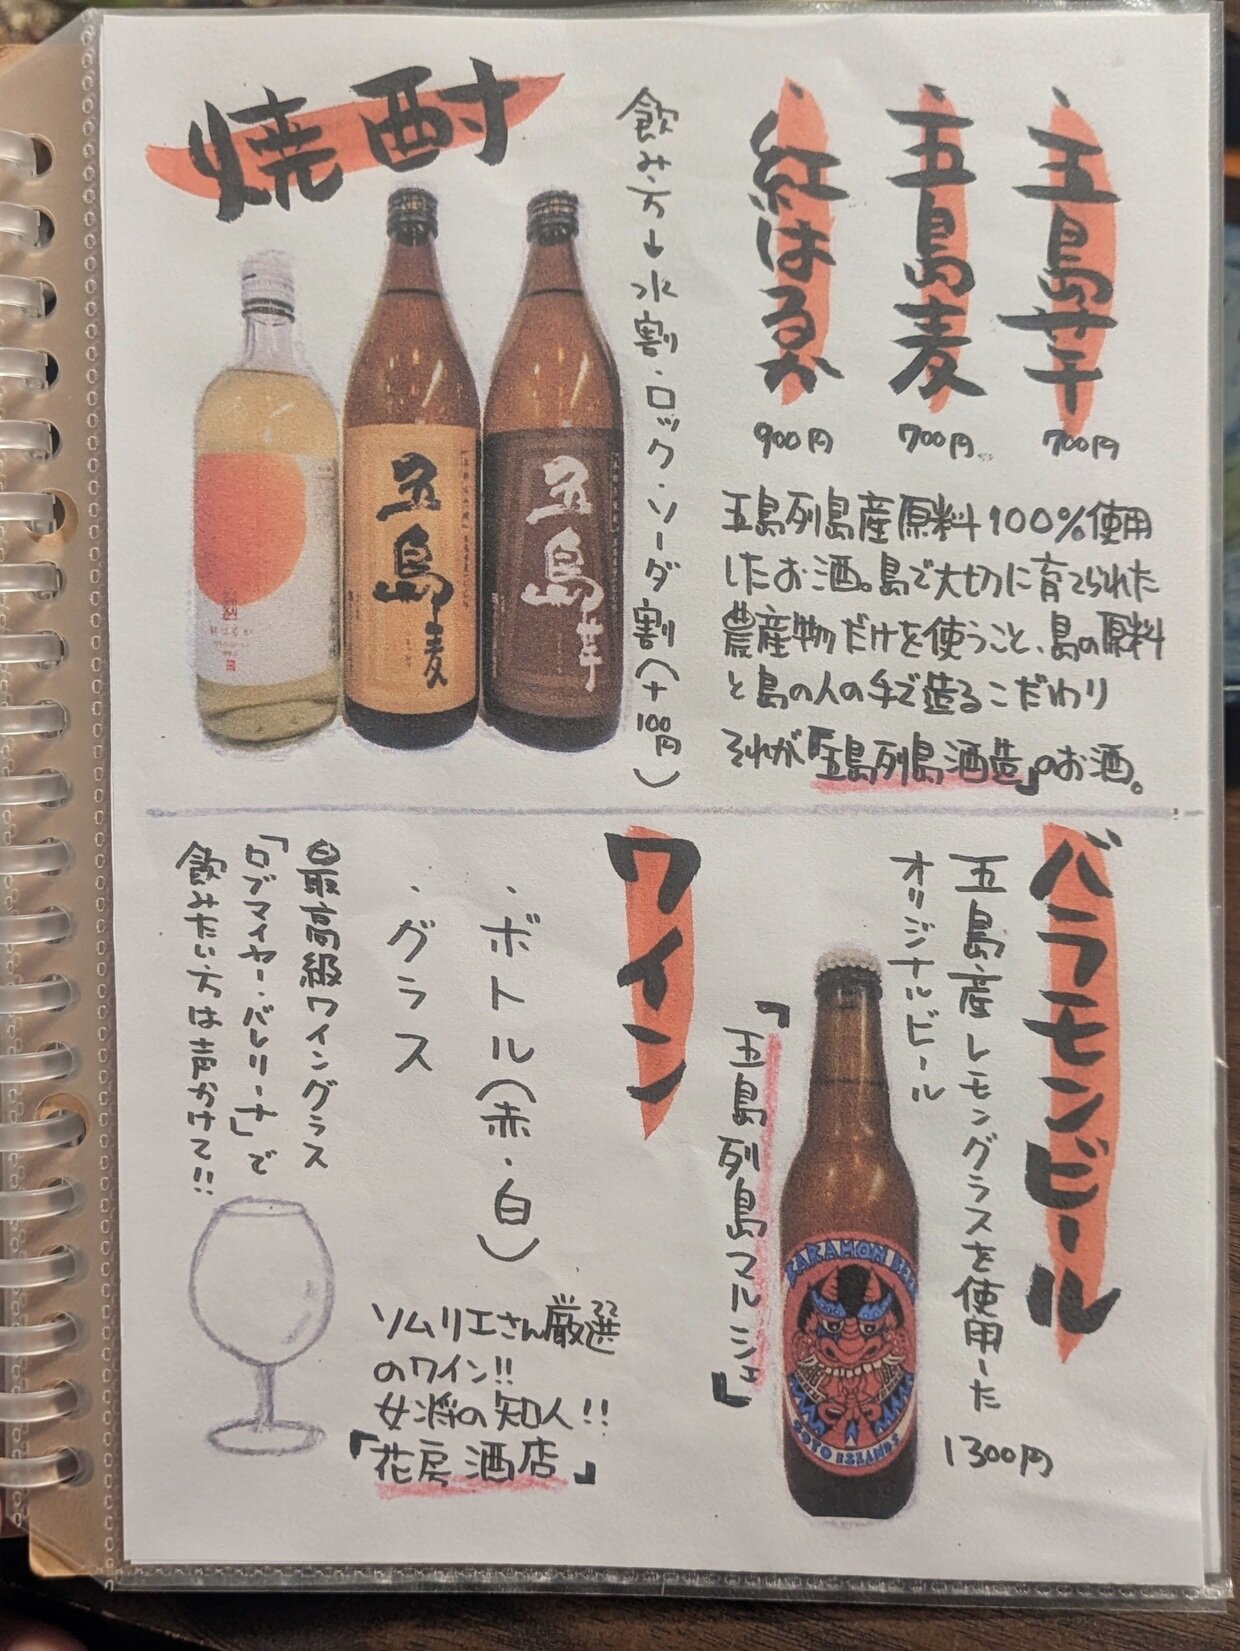 焼酎
・五島芋
700円
・五島麦
700円
・紅はるか
900円
飲み方→水割・ロック・ソーダ割(+100円)
五島列島産原料100%使用
したお酒。島で大切に育てられた
農産物だけを使うこと、島の原料
と島の人の手で造るこだわり
それが『五島列島酒造』のお酒。
五島麦
五島芋
紅はるか
バラモンビール
五島産レモングラスを使用した
オリジナルビール
1300円
『五島列島マルシェ』
BARAMON BEER
GOTO ISLANDS
ワイン
・ボトル(赤・白)
・グラス
ソムリエさん厳選
のワイン!!
女将の知人!!
『花房酒店』
最高級ワイングラス
「ロブマイヤー・バレリーナ」で
飲みたい方は声かけて!!